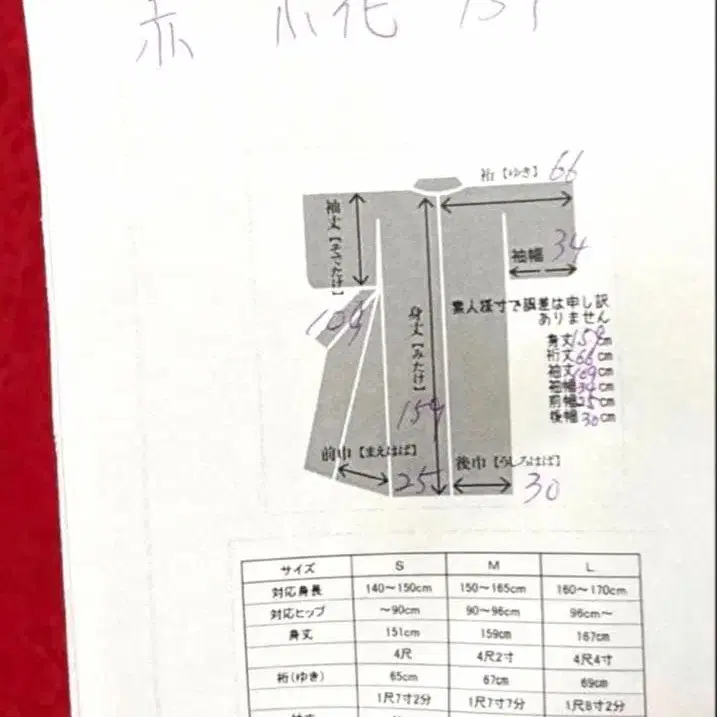 赤 小花
裄【ゆき】 66
袖丈【そでたけ】
袖幅 34
109
身丈【みたけ】
159
素人採寸で誤差は申し訳
ありません
身丈159cm
裄丈66cm
袖丈109cm
袖幅34cm
前幅25cm
後幅30cm
前巾【まえはば】 25
後巾【うしろはば】
30
サイズ S M L
対応身長 140～150cm 150～165cm 160～170cm
対応ヒップ ～90cm 90～96cm 96cm～
身丈 151cm 159cm 167cm
4尺 4尺2寸 4尺4寸
裄(ゆき) 65cm 67cm 69cm
1尺7寸2分 1尺7寸7分 1尺8寸2分